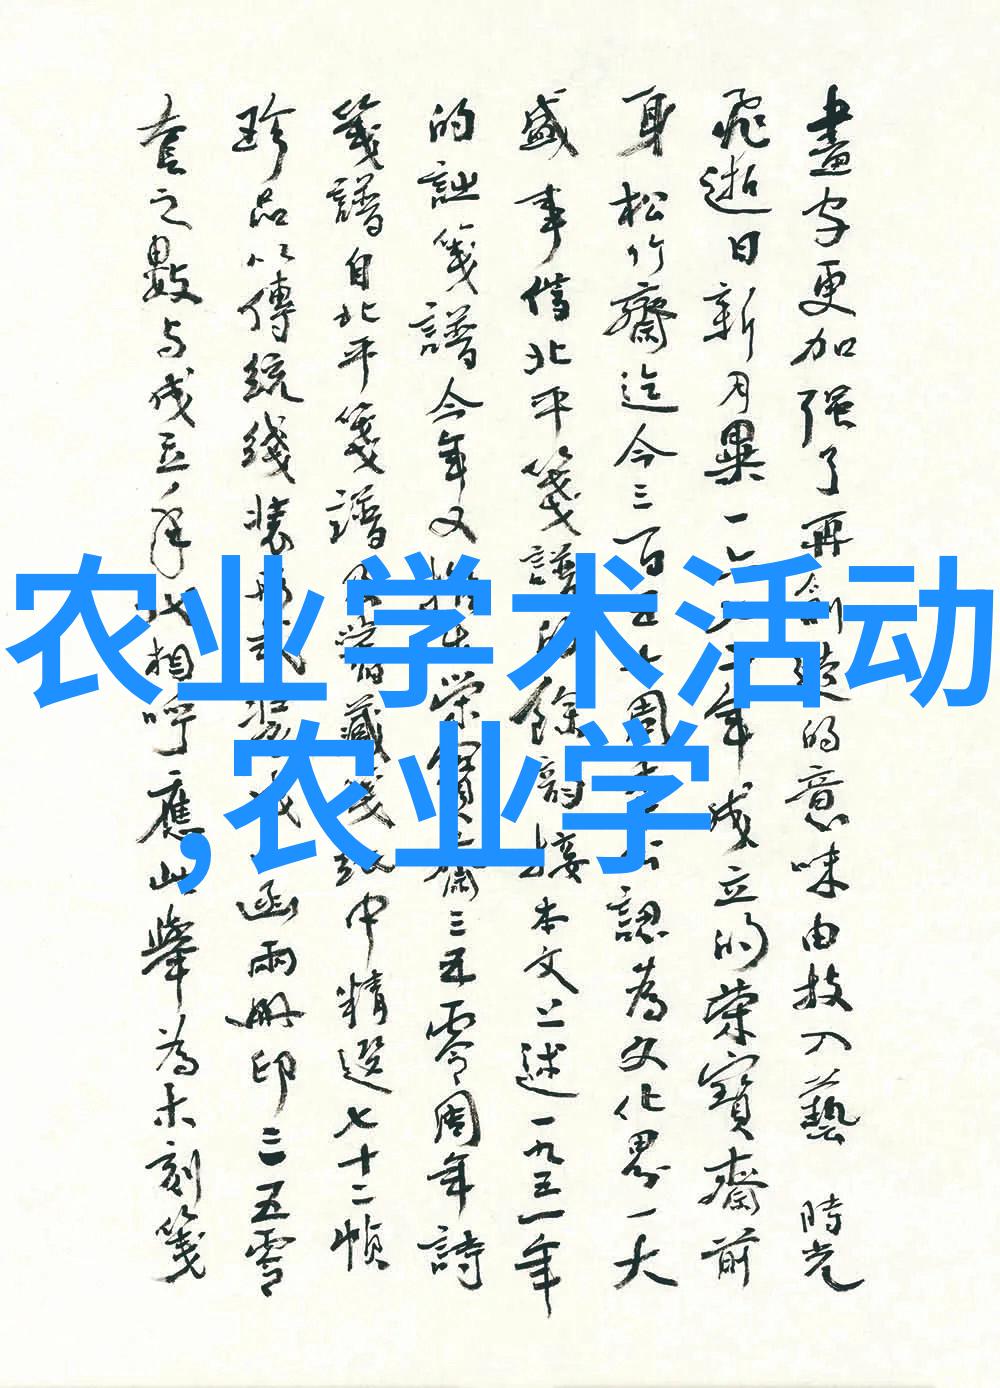 畫字更加强了再創造的意味由技入藝 時光
飛逝日新月異一六七二年成立的榮寶齋前
身松竹齋迄今三百五十周年公認為文化界一大
盛事借北平箋譜的餘韵接本文上述一九五一年
的詩箋譜今年又推出榮寶齋三五零周年詩
箋譜自北平箋譜及舊藏箋紙中精選七十二幀
珍品以傳統綫裝形式裝成一函兩册印三五零
套之數与成立年代相呼應此舉為木刻箋
农业学术活动
,农业学